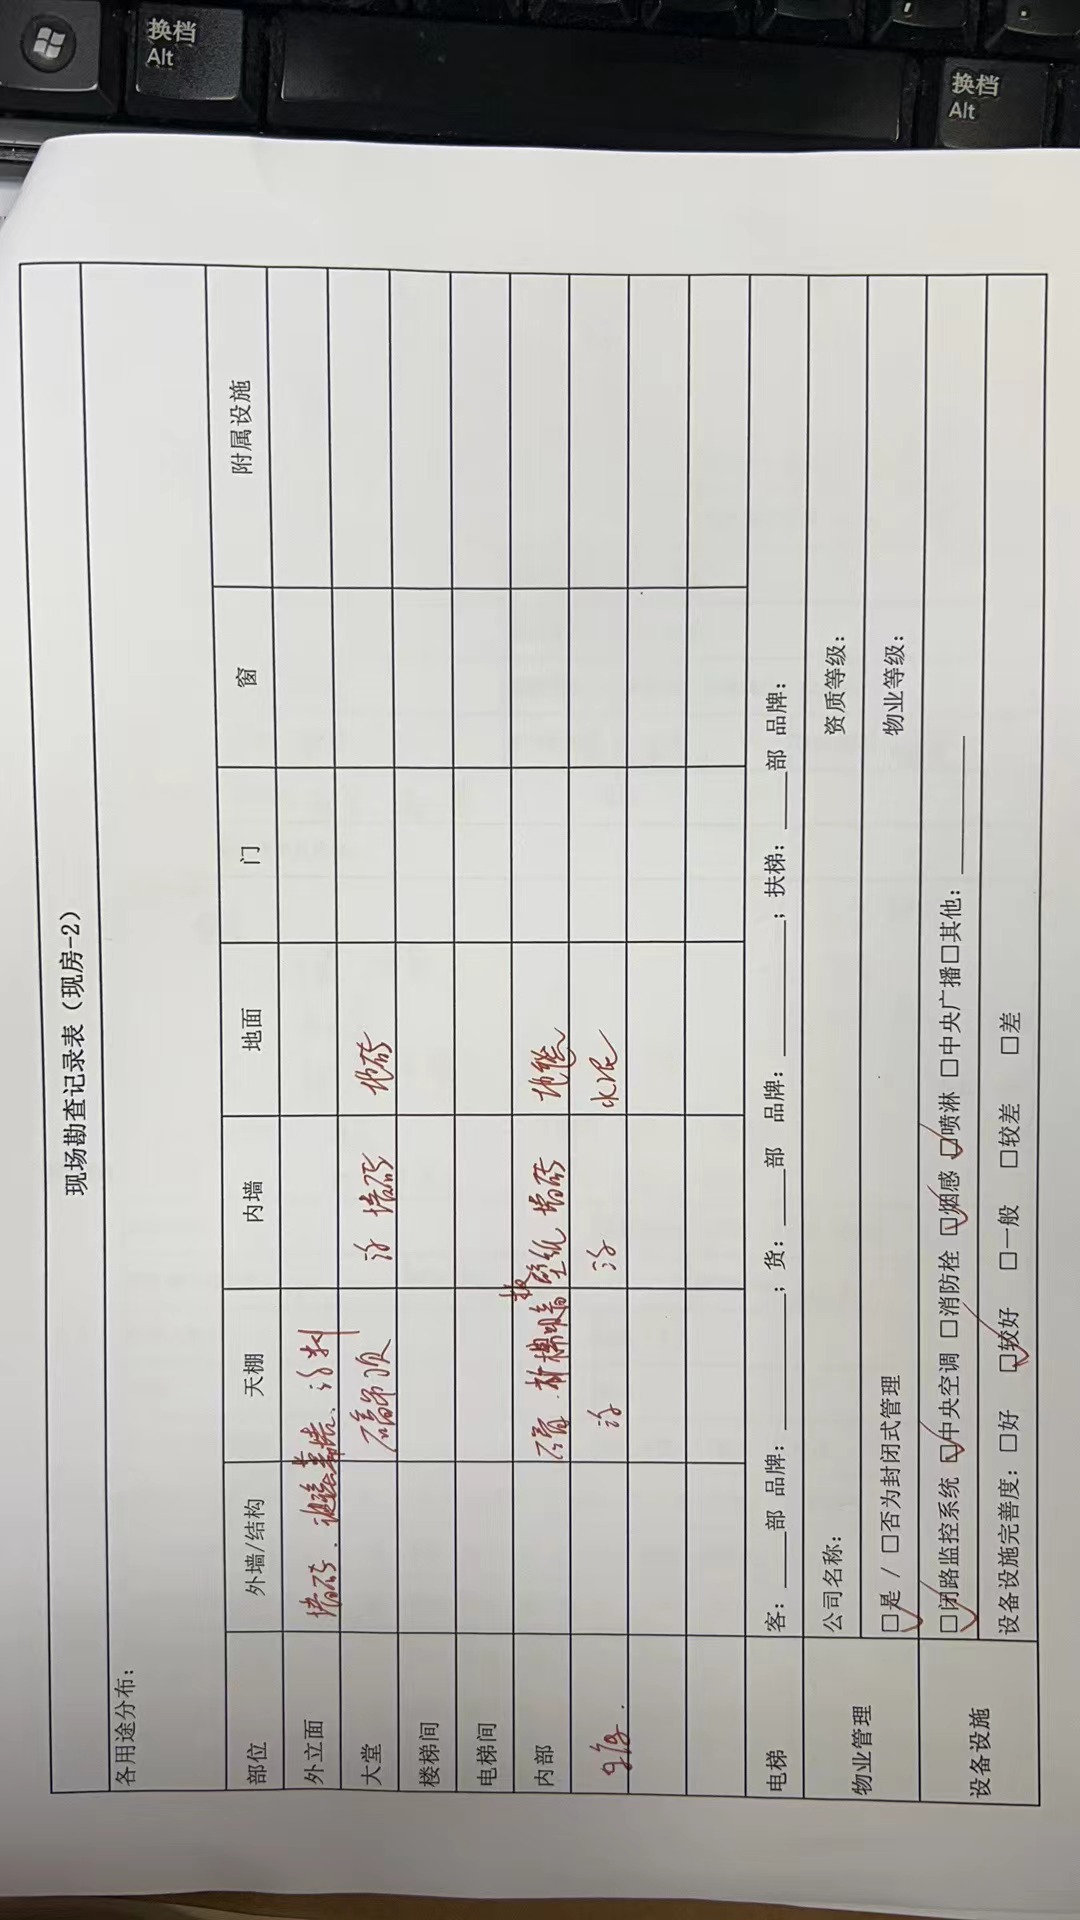 换档
Alt
换档
Alt
现场勘查记录表（现房-2）
各用途分布：
部位 外墙/结构 天棚 内墙 地面 门 窗 附属设施
外立面 墙砖、玻璃幕墙、涂料
大堂 石膏吊顶 涂 墙砖 地砖
楼梯间
电梯间
内部 石膏、矿棉吸音板 壁纸 墙砖 地毯
涂 涂 水泥
电梯 客：____部 品牌：________；货：____部 品牌：________；扶梯：____部 品牌：
物业管理 公司名称： 资质等级：
☑是 / □否为封闭式管理 物业等级：
设备设施 ☑闭路监控系统 ☑中央空调 □消防栓 ☑烟感 ☑喷淋 □中央广播□其他：________
设备设施完善度：□好 ☑较好 □一般 □较差 □差